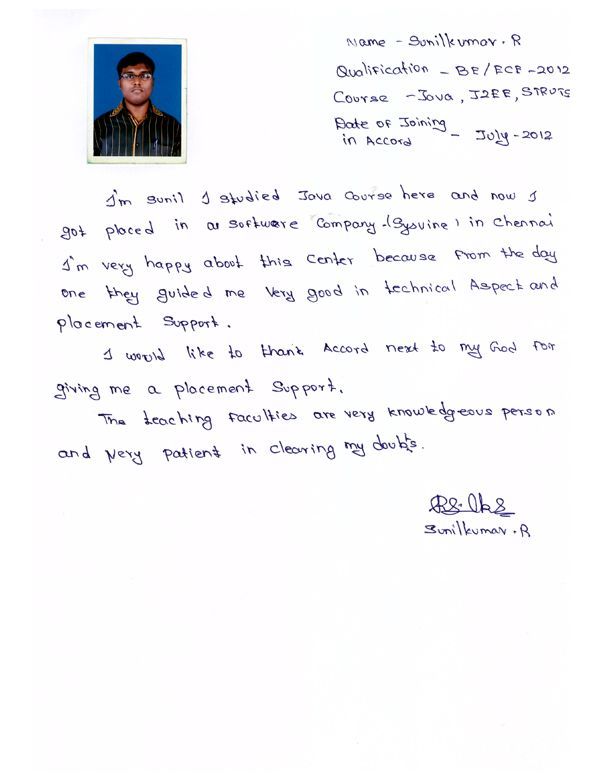 Name - Sunilkumar. R
Qualification - BE/ECE-2012
Course - Java, J2EE, STRUTS
Date of Joining
in Accord - July-2012
I'm Sunil I studied Java Course here and now I
got placed in a Software Company-(Sysvine) in Chennai
I'm very happy about this Center because From the day
one they guided me very good in technical Aspect and
placement Support.
I would like to thank Accord next to my God For
giving me a placement Support.
The teaching Faculties are very knowledgeous person
and very patient in clearing my doubts.
Sunilkumar. R